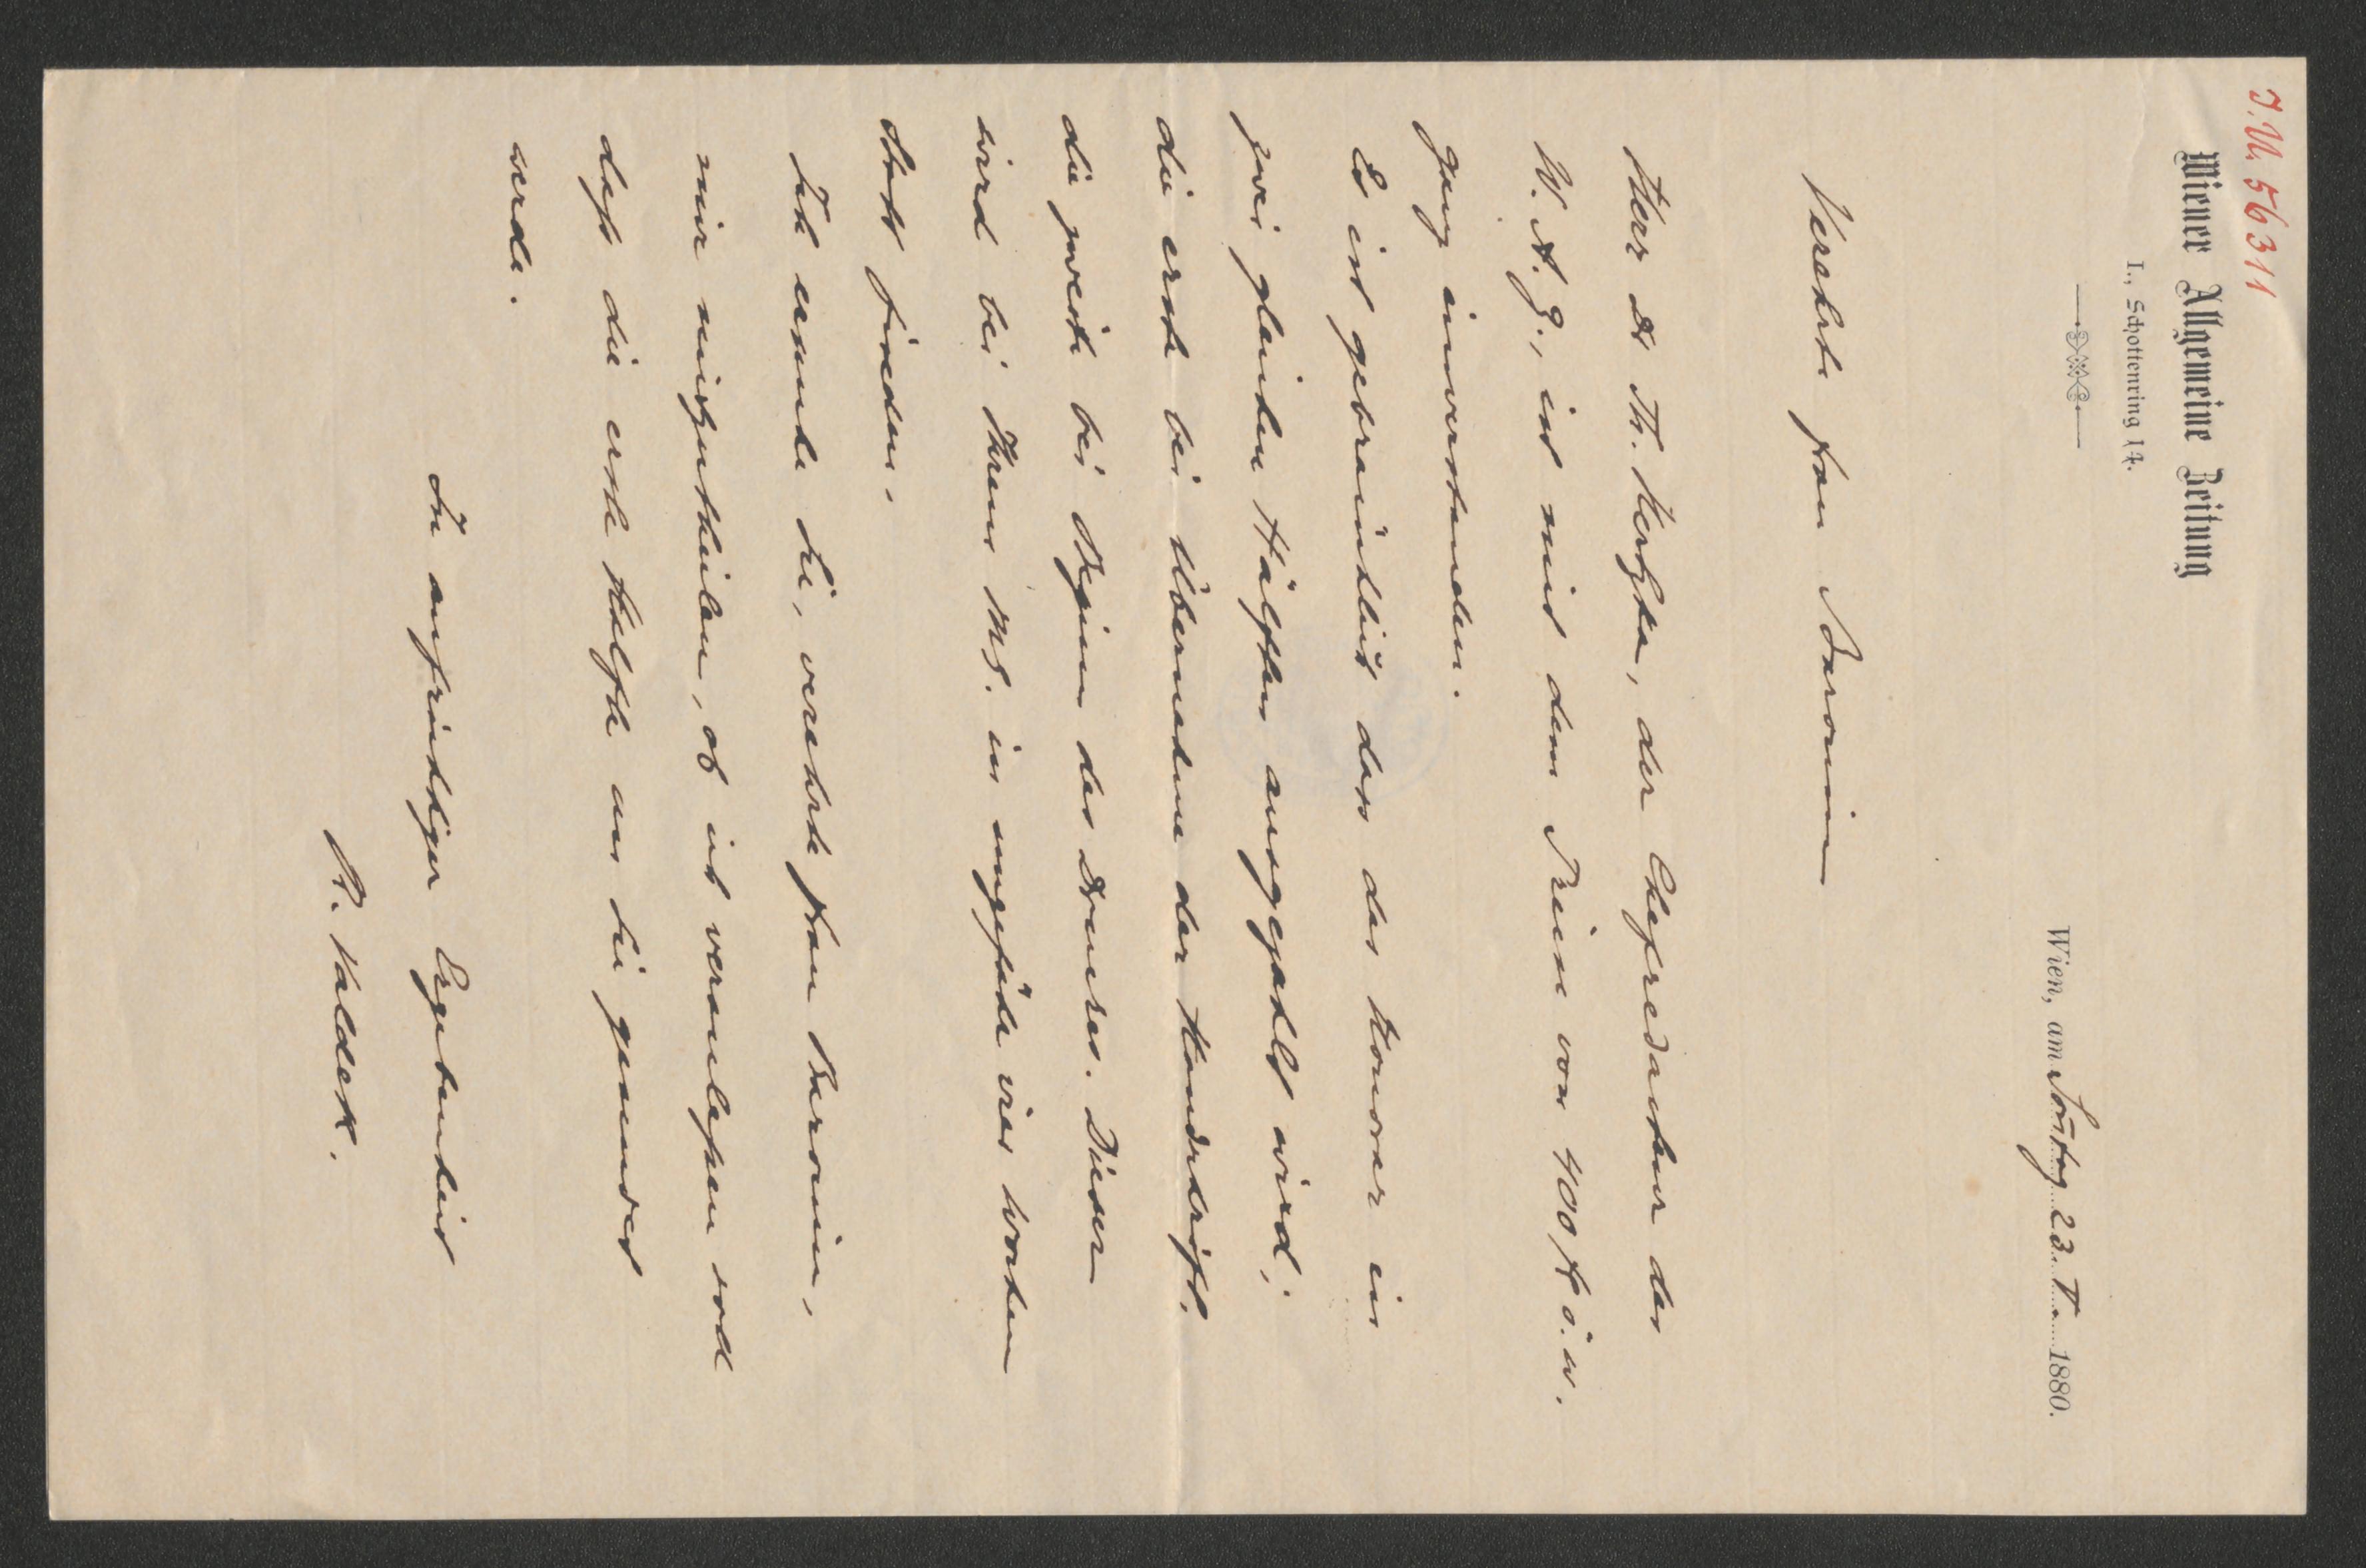 I.N. 56311
Wiener Allgemeine Zeitung
I., Schottenring 14.
Wien, am Sonntag 23. V. 1880.
Verehrte Frau Baronin
Herr Dr Th. Hertzka, der Chefredacteur der
W. A. Z., ist mit dem Preise von 400 fl ö. w.
ganz einverstanden.
Es ist gebräuchlich dass das Honorar in
zwei gleichen Hälften ausgezahlt wird;
die erste bei Übernahme der Handschrift,
die zweite bei Beginn des Druckes. Dieser
wird bei Ihrem MS. in ungefähr vier Wochen
statt finden.
Ich ersuche Sie, verehrte Frau Baronin,
mir mitzutheilen, ob ich veranlassen soll
dass die erste Hälfte an Sie gesendet
werde.
In aufrichtiger Ergebenheit
R. Valdek.